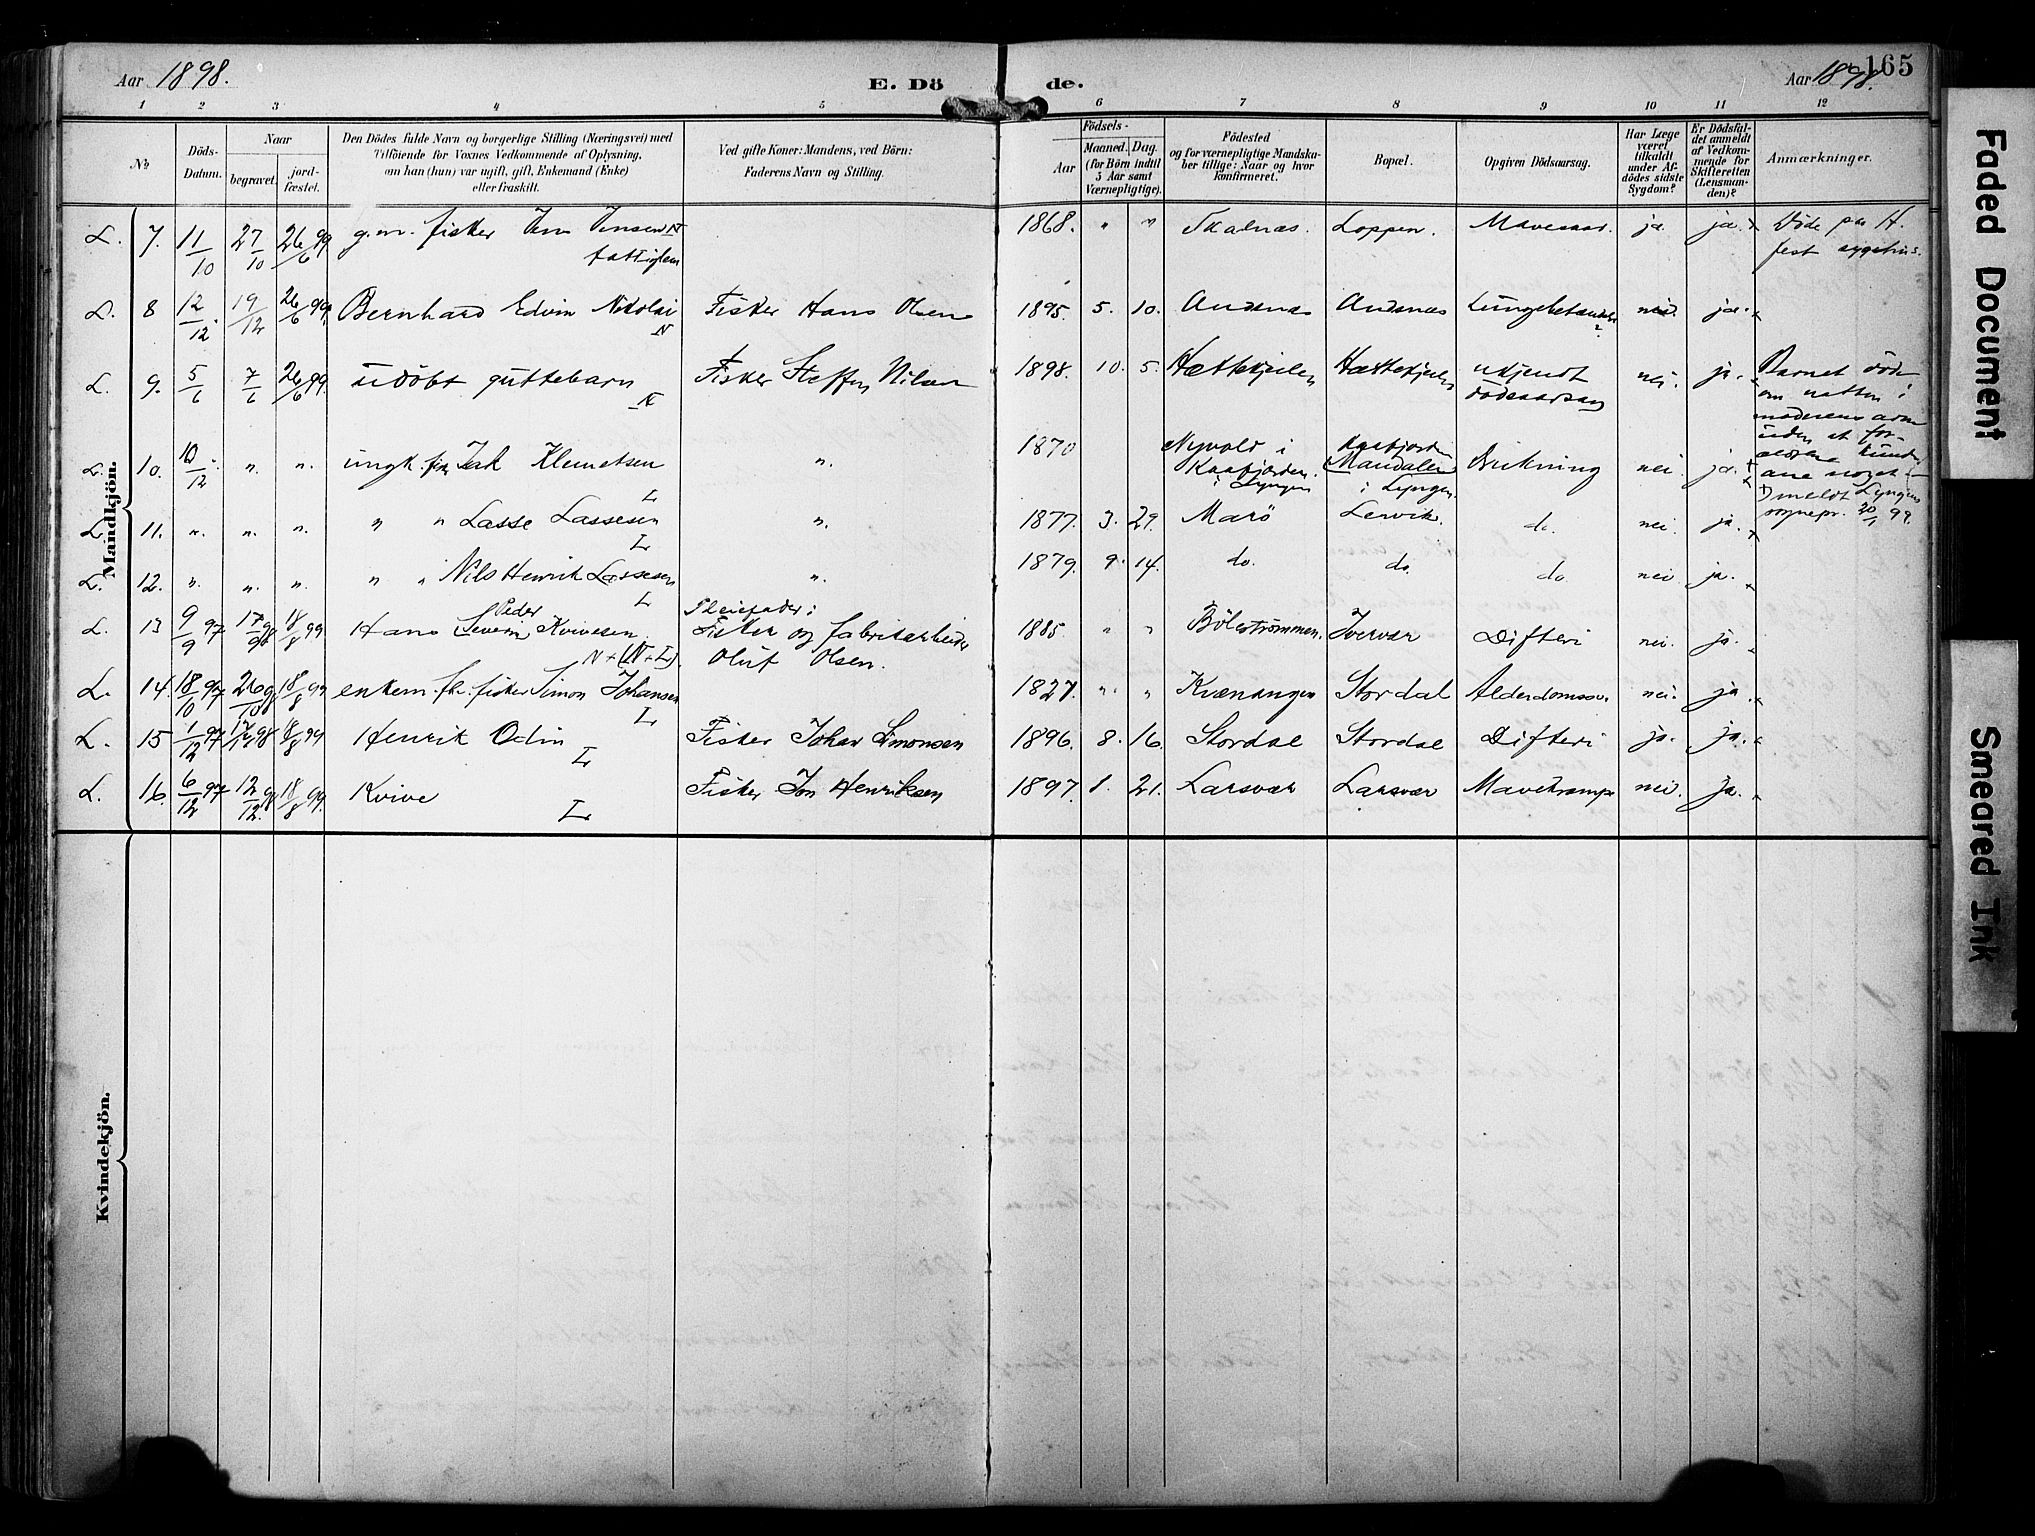 Aar 1898.
E. Dö de.
Aar 1898.
165
1 2 3 4 5 6 7 8 9 10 11 12
No
Döds-Datum.
Naar
begravet.
jord-fæstet.
Den Dödes fulde Navn og borgerlige Stilling (Næringsvei) med
Tilföiende for Voxnes Vedkommende af Oplysning,
om han (hun) var ugift, gift, Enkemand (Enke)
eller fraskilt.
Ved gifte Koner: Mandens, ved Börn:
Faderens Navn og Stilling.
Födsels-
Aar
Maaned. Dag.
(for Börn indtil
5 Aar samt
Værnepligtige).
Födested
og for værnepligtige Mandska-
ber tillige: Naar og hvor
konfirmeret.
Bopæl.
Opgiven Dödsaarsag.
Har Læge
været
tilkaldt
under Af-
dödes sidste
Sygdom?
Er Dödsfal-
det anmeldt
af Vedkom-
mende for
Skifteretten
(Lensman-
den)?
Anmærkninger.
Mandkjön.
L. 7. 11/10 27/10 26/6 99 g.m. fisker Jensen N 1868. " " Skalnæs. Loppen. ja. ja. Döde paa H.
fest sygehus.
L. 8 12/12 19/12 26/6 99 Bernhard Edvin Nikolai N Fisker Hans Olsen 1895. 5. 10. Andsnæs Andsnæs nei. ja.
L. 9. 5/6 7/6 26/6 99. udöbt guttebarn N Fisker Steffen Nilsen 1898. 10. 5. ukjendt
dödsaarsag nei. ja. Barnet döde
om natten i
moderens arm
uden at for-
ældrene kunde
ane noget.
L. 10. 10/12 " " ungk. Klemetsen L " 1870 Nyvold i
Kaafjorden
i Lyngen Kaafjorden
Mandalen
i Lyngen. Drukning nei. ja.
meldt Lyngens
sognepr. 20/1 99.
L. 11. " " " " " Lasse Lassesen L " 1877. 3. 29. Marö Lervik. do. nei. ja.
L. 12. " " " " " Nils Henrik Lassesen L " 1879. 9. 14. do. do. do. nei. ja.
L. 13 9/9 97 17/9 98 18/8 99 Hans Peder
Severin Kvivesen N+(N+L). Pleiefader:
Fisker og fabrikarbeider
Oluf Olsen. 1885 " " Bölestrømmen. Difteri nei. ja.
L. 14. 18/10 97 26/10 98 18/8 99 enkem. fh. fisker Simon Johansen L 1827. " " Kvænangen Stordal nei. ja
L. 15 1/12 97 98 18/8 99 Henrik Odin L Fisker Johan Simonsen 1896. 8. 16. Stordal Stordal Difteri ja. ja.
L. 16. 6/12 97 12/12 98 18/8 99. Kvive L Fisker Jon Henriksen 1897. 1. 21. Larsvær Larsvær Mavekrampe nei. ja.
Kvindekjön.
Faded Document
Smeared Ink